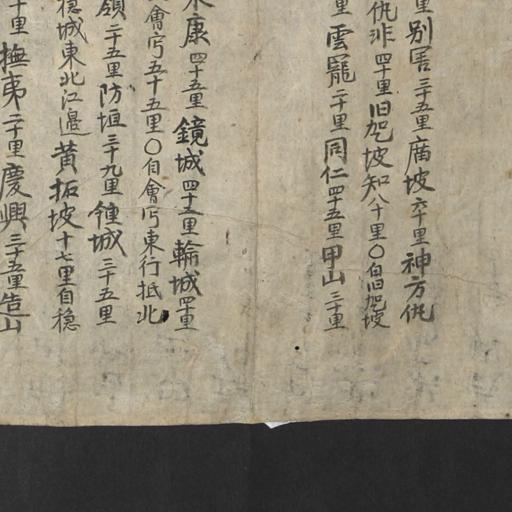 里別害三十五里廣坡六十里神方仇
仇非四十里旧加乙坡知八十里〇自旧加乙坡
里雲寵二十里同仁四十五里甲山三十里
康四十五里鏡城四十五里輸城四十里
會宁五十五里〇自會宁東行抵北
嶺二十五里防垣三十九里鍾城三十五里
穏城東北江邉黄拓坡十七里自穏
十里撫夷二十里慶興三十五里造山